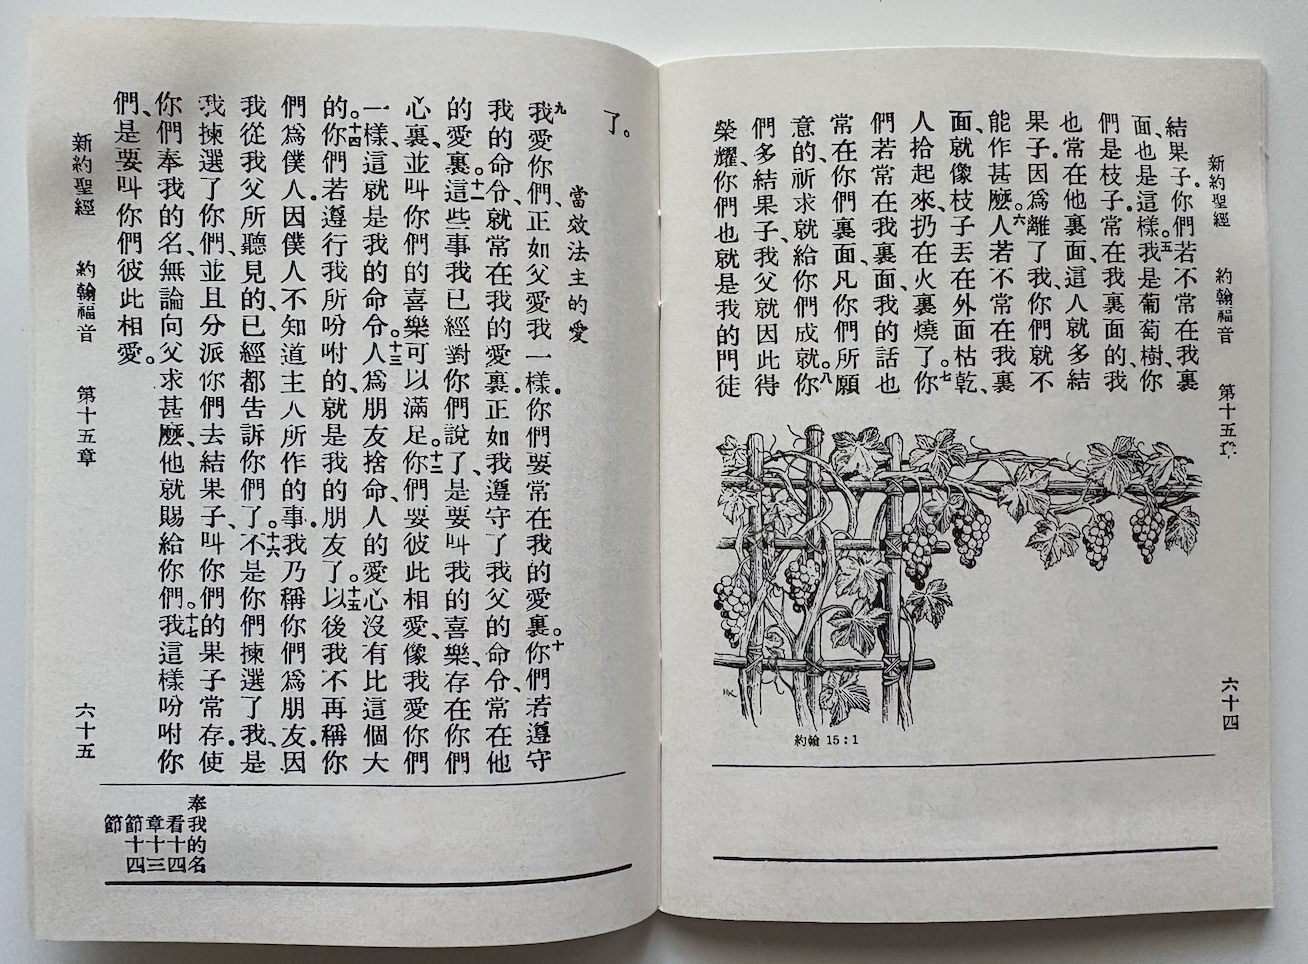 新約聖經 約翰福音 第十五章 六十四
結果子.你們若不常在我裏
面、也是這樣。五我是葡萄樹、你
們是枝子.常在我裏面的、我
也常在他裏面、這人就多結
果子.因爲離了我、你們就不
能作甚麼。六人若不常在我裏
面、就像枝子丟在外面枯乾、
人拾起來、扔在火裏燒了。七你
們若常在我裏面、我的話也
常在你們裏面、凡你們所願
意的、祈求就給你們成就。八你
們多結果子、我父就因此得
榮耀、你們也就是我的門徒
HK
約翰 15：1
了。
當效法主的愛
九我愛你們、正如父愛我一樣.你們要常在我的愛裏。十你們若遵守
我的命令、就常在我的愛裏.正如我遵守了我父的命令、常在他
的愛裏。十一這些事我已經對你們說了、是要叫我的喜樂、存在你們
心裏、並叫你們的喜樂可以滿足。十二你們要彼此相愛、像我愛你們
一樣、這就是我的命令。十三人爲朋友捨命、人的愛心沒有比這個大
的。十四你們若遵行我所吩咐的、就是我的朋友了。十五以後我不再稱你
們爲僕人.因僕人不知道主人所作的事.我乃稱你們爲朋友.因
我從我父所聽見的、已經都告訴你們了。十六不是你們揀選了我、是
我揀選了你們、並且分派你們去結果子、叫你們的果子常存.使
你們奉我的名、無論向父求甚麼、他就賜給你們。十七我這樣吩咐你
們、是要叫你們彼此相愛。
奉我的名
看十四
章十三
節十四
節
新約聖經 約翰福音 第十五章 六十五